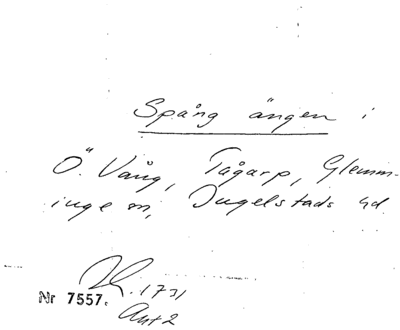 Spång ängen i
Ö. Vång, Tågarp, Glemm-
inge sn, Ingelstads hd.
1731
Nr 7557.
Akt 2